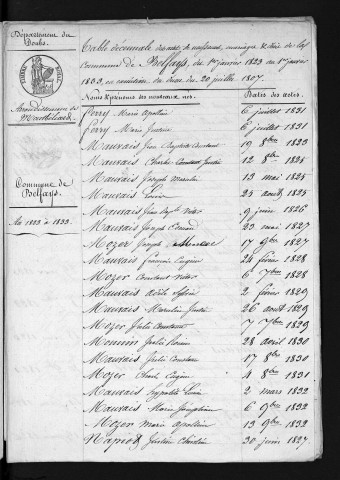 Département du
Doubs.
Arrondissement de
Montbéliard
Commune de
Belfays.
An 1823 à 1833.
Table décennale des actes de naissance, mariages & décès de la
Commune de Belfays, du 1er janvier 1823 au 1er janvier
1833, en exécution du décret du 20 juillet 1807.
Noms & prénoms des nouveaux nés. Dates des actes.
Ferry Marie Apolline 6 juillet 1831
Ferry Marie Justine 6 juillet 1831
Mauvais Jean Baptiste Constant 19 8bre 1823
Mauvais Charles Constant Justin 12 8bre 1825
Mauvais Joseph Marcelin 13 mai 1825
Mauvais Louis 25 août 1825
Mauvais Jean Bapte Victor 9 juin 1826
Mauvais Joseph Edouard 29 mai 1827
Mozer Joseph 17 9bre 1827
Mauvais François Eugène 28 février 1828
Mozer Constant Victor 6 7bre 1828
Mauvais Adèle 2 février 1829
Mauvais Marcelin Justin 26 août 1829
Mozer Julie Constance 7 7bre 1829
Monnin Julie 28 avril 1830
Mauvais Julie Constance 17 8bre 1830
Mozer Charles Eugène 4 8bre 1831
Mauvais hypolite Louis 2 mars 1832
Mauvais Marie Josephine 6 9bre 1832
Mozer Marie Apolline 13 9bre 1832
30 juin 1827.